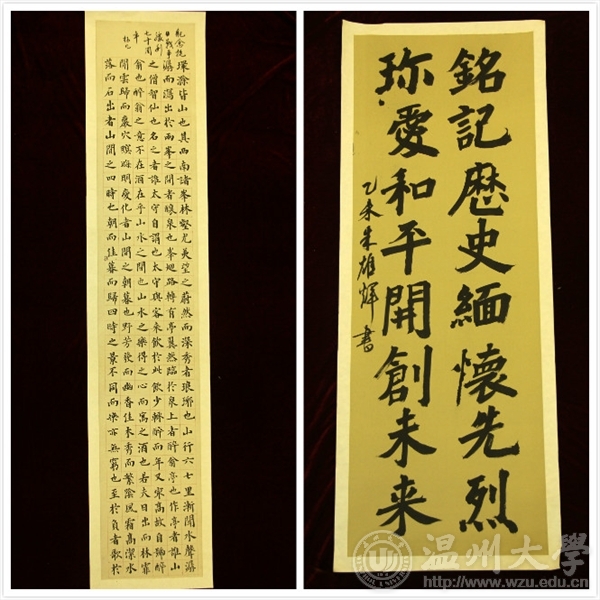 紀念抗
日戰爭
勝利
七十周
年
環滁皆山也其西南諸峯林壑尤美望之蔚然而深秀者琅琊也山行六七里漸聞水聲潺
潺而瀉出於兩峯之間者釀泉也峯迴路轉有亭翼然臨於泉上者醉翁亭也作亭者誰山
之僧智仙也名之者誰太守自謂也太守與客來飲於此飲少輒醉而年又最高故自號醉
翁也醉翁之意不在酒在乎山水之間也山水之樂得之心而寓之酒也若夫日出而林霏
開雲歸而巖穴暝晦明變化者山間之朝暮也野芳發而幽香佳木秀而繁陰風霜高潔水
落而石出者山間之四時也朝而往暮而歸四時之景不同而樂亦無窮也至於負者歌於
銘記歷史緬懷先烈
珍愛和平開創未来
乙未朱雄輝書
温州大學
http://www.wzu.edu.cn